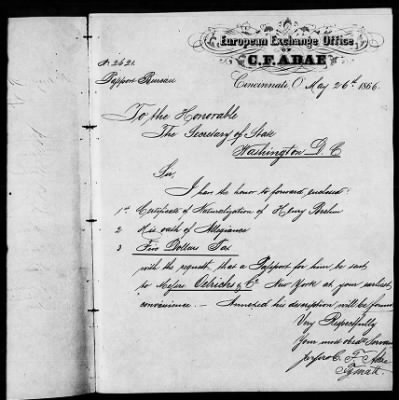 European Exchange Office
OF
C. F. ADAE
Cincinnati, O. May 26th 1866.
Passport Bureau
To the Honorable
The Secretary of State
Washington D. C
Sir,
I have the honor to forward enclosed:
1st Certificate of Naturalization of Henry
2 His oath of Allegiance
3 Five Dollars Tax
with the request, that a Passport for him be sent
to Messrs Oelrichs & Co New York at your earliest
convenience. — Annexed his description will be found
Very Respectfully
Your most obedt Servant
C. F. Adae